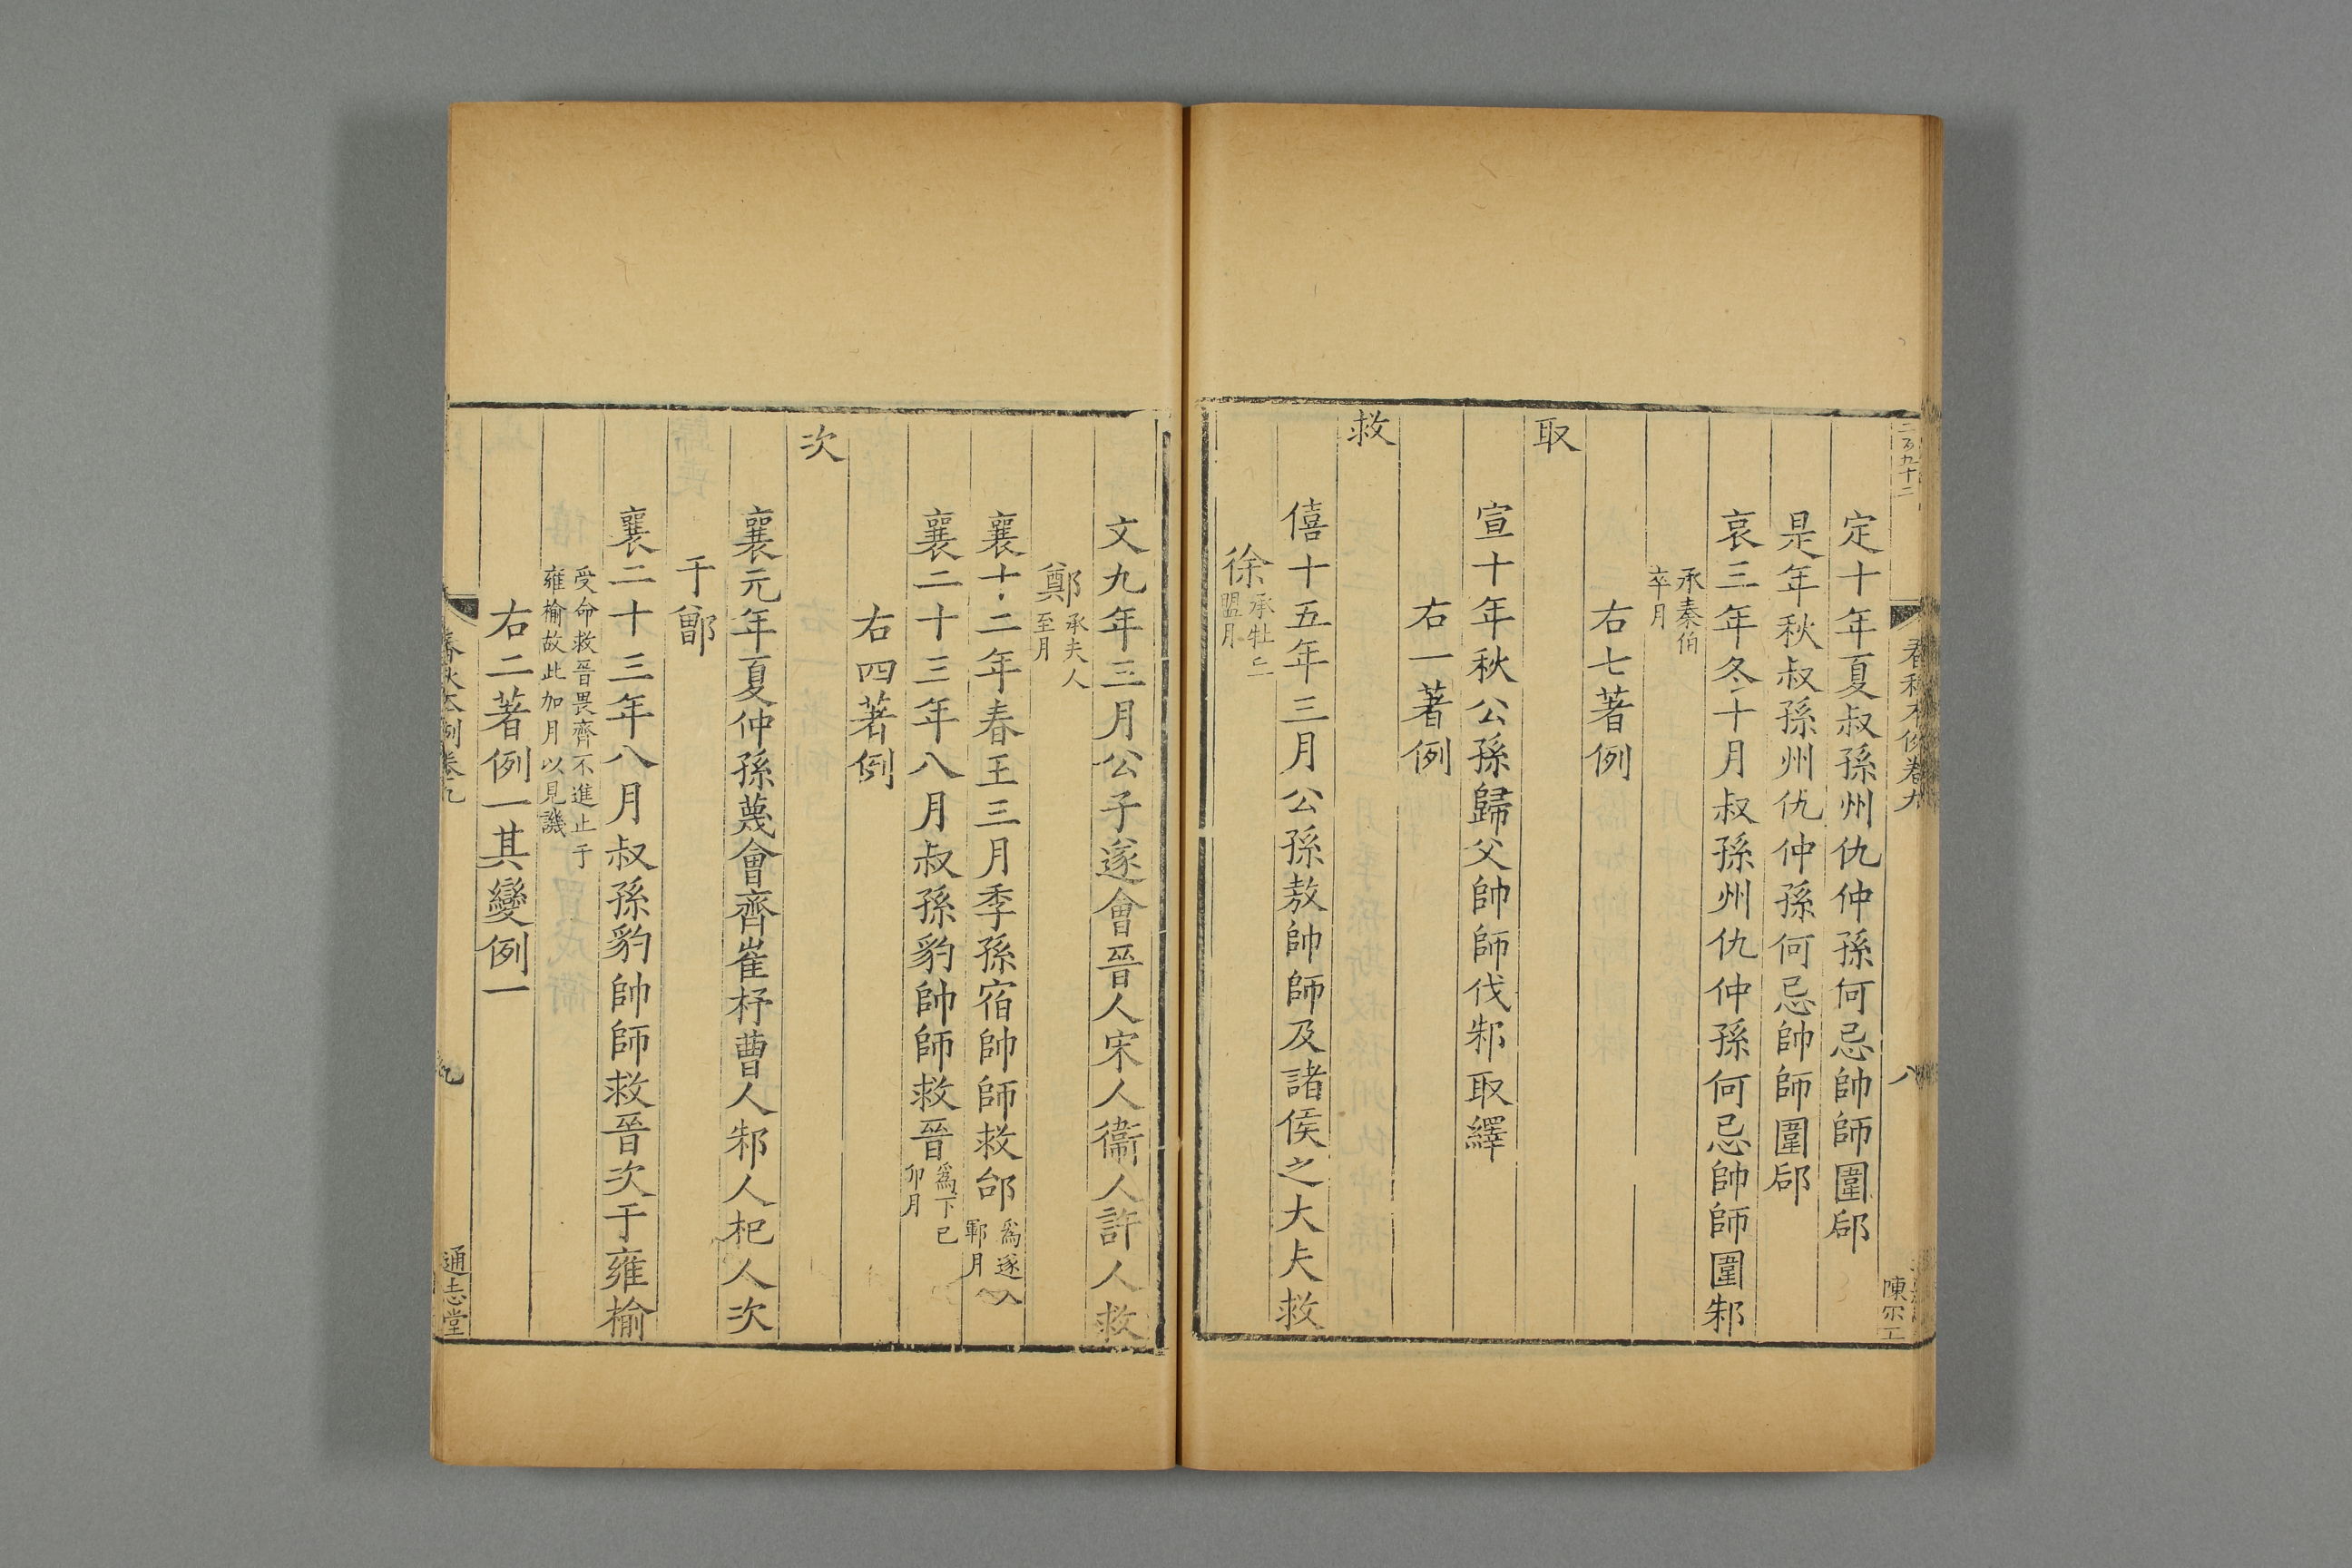 二百九十二
春秋本例卷九
八
陳宗工
定十年夏叔孫州仇仲孫何忌帥師圍郈
是年秋叔孫州仇仲孫何忌帥師圍郈
哀三年冬十月叔孫州仇仲孫何忌帥師圍邾
承秦伯
卒月
右七著例
取
宣十年秋公孫歸父帥師伐邾取繹
右一著例
救
僖十五年三月公孫敖帥師及諸侯之大夫救
徐承牡丘
盟月
文九年三月公子遂會晉人宋人衞人許人救
鄭承夫人
至月
襄十二年春王三月季孫宿帥師救邰爲遂入
鄆月
襄二十三年八月叔孫豹帥師救晉爲下己
卯月
右四著例
次
襄元年夏仲孫蔑會齊崔杼曹人邾人杞人次
于鄫
襄二十三年八月叔孫豹帥師救晉次于雍榆
受命救晉畏齊不進止于
雍榆故此加月以見譏
右二著例一其變例一
春秋本例卷九
九
通志堂